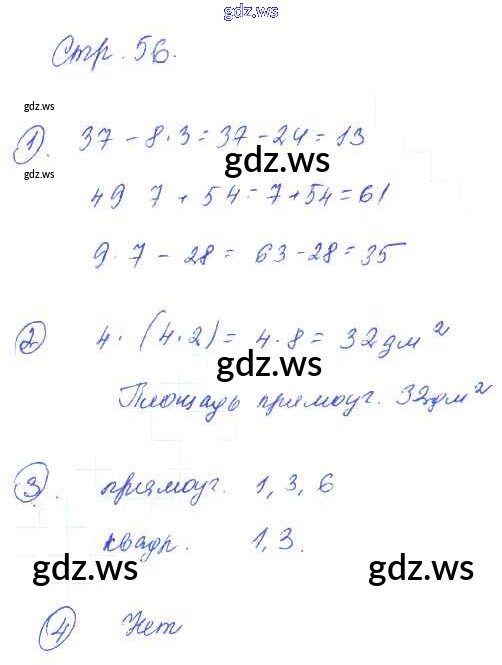 gdz.ws
Стр. 56.
gdz.ws
1). 37 - 8·3 = 37 - 24 = 13
gdz.ws
gdz.ws
49 7 + 54 = 7 + 54 = 61
9·7 - 28 = 63 - 28 = 35
2) 4·(4·2) = 4·8 = 32 дм²
gdz.ws
Площадь прямоуг. 32 дм²
3). прямоуг. 1, 3, 6
квадр. 1, 3.
gdz.ws gdz.ws
4) Нет